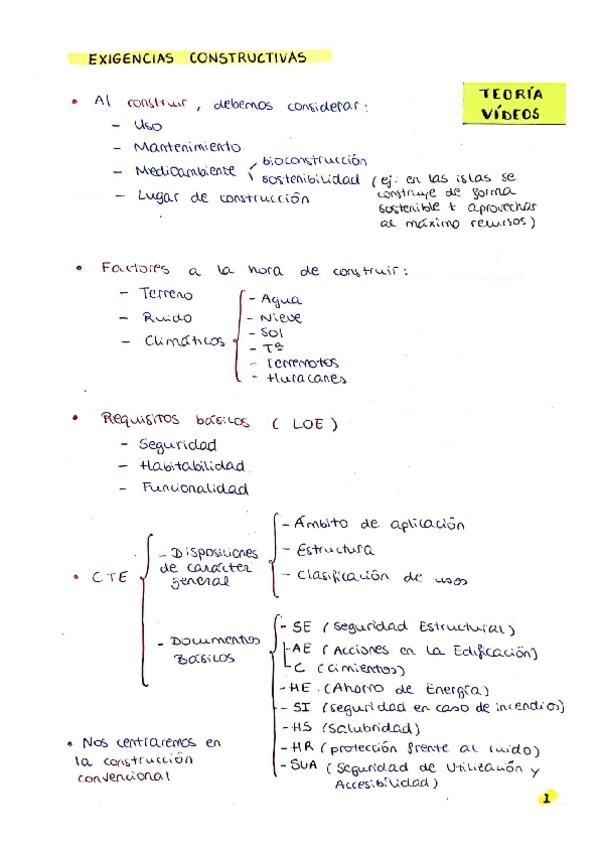 EXIGENCIAS CONSTRUCTIVAS
TEORÍA
VÍDEOS
• Al construir, debemos considerar:
- Uso
- Mantenimiento
- Medioambiente
bioconstrucción
sostenibilidad (ej: en las islas se
construye de forma
sostenible + aprovechar
al máximo recursos)
- Lugar de construcción
• Factores a la hora de construir:
- Terreno
- Ruido
- Climáticos
- Agua
- Nieve
- Sol
- Tª
- Terremotos
- Huracanes
• Requisitos básicos (LOE)
- Seguridad
- Habitabilidad
- Funcionalidad
• CTE
- Disposiciones
de carácter
general
- Ámbito de aplicación
- Estructura
- Clasificación de usos
- Documentos
Básicos
- SE (Seguridad Estructural)
- AE (Acciones en la Edificación)
- C (Cimientos)
- HE (Ahorro de Energía)
- SI (seguridad en caso de incendios)
- HS (Salubridad)
- HR (protección frente al ruido)
- SUA (Seguridad de Utilización y
Accesibilidad)
• Nos centraremos en
la construcción
convencional
1